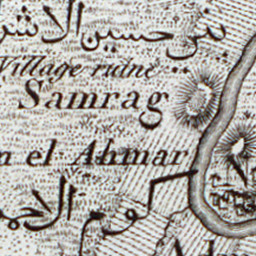 بني حسين الاشر
Village ruiné
Samrag
سمرق
n el Ahmar
كوم الاحمر